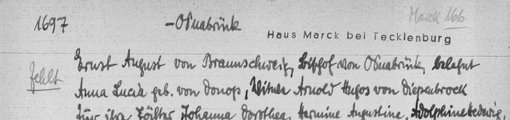 1697 - Osnabrück Marck 166
Haus Marck bei Tecklenburg
Ernst August von Braunschweig, Bischof von Osnabrück, belehnt
fehlt Anna Lucia geb. von Donop, Witwe Arnold Hugos von Diepenbrock
für ihre Töchter Johanna Dorothea, Hermine Augustine, Adolphine Hedwig,